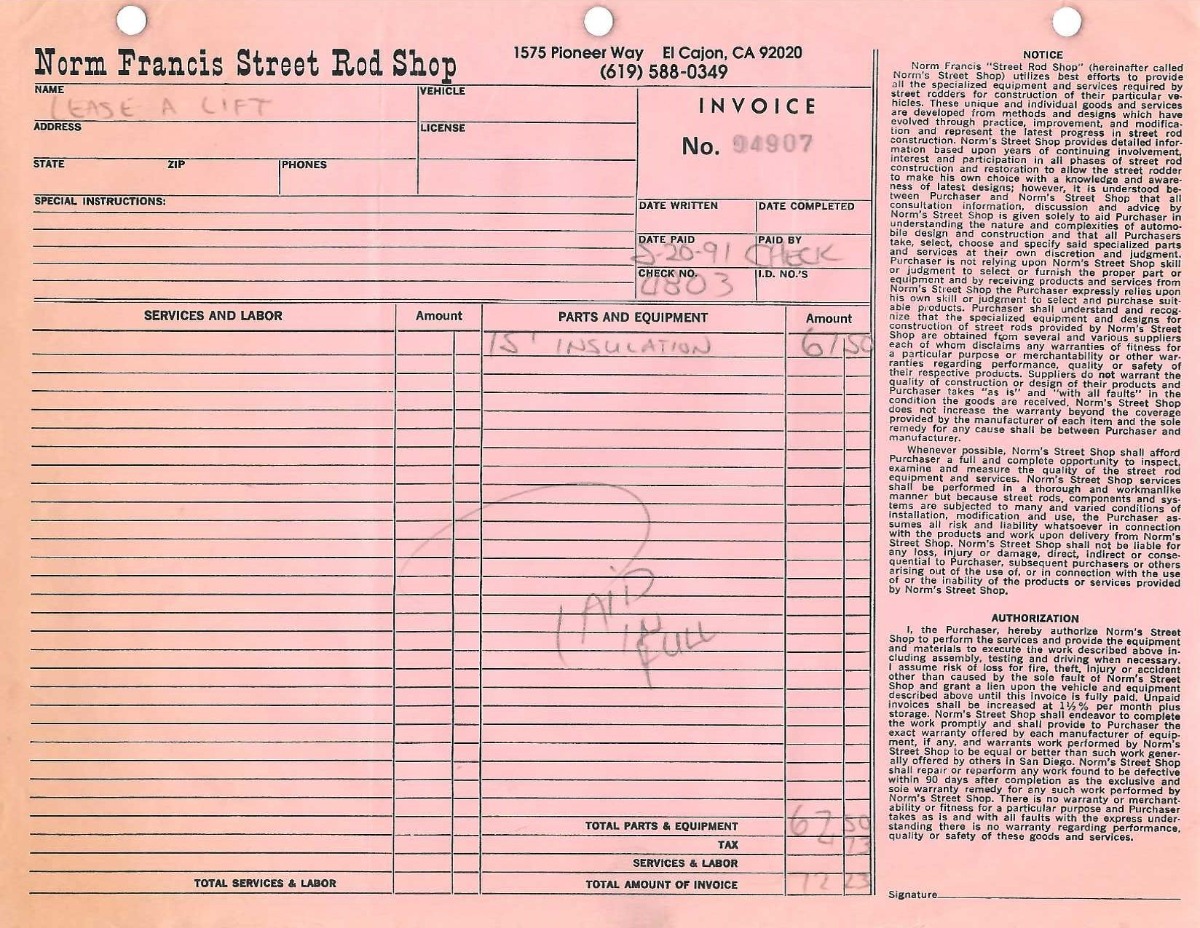 Norm Francis Street Rod Shop
1575 Pioneer Way El Cajon, CA 92020
(619) 588-0349
NAME
LEASE A LIFT
VEHICLE
ADDRESS
LICENSE
STATE ZIP PHONES
SPECIAL INSTRUCTIONS:
INVOICE
No. 94907
DATE WRITTEN DATE COMPLETED
DATE PAID PAID BY
-20-91 CHECK
CHECK NO. I.D. NO.'S
4803
SERVICES AND LABOR Amount PARTS AND EQUIPMENT Amount
15' INSULATION 67 50
PAID
IN
FULL
TOTAL PARTS & EQUIPMENT 67 50
TAX 4 73
SERVICES & LABOR
TOTAL SERVICES & LABOR TOTAL AMOUNT OF INVOICE 72 23
NOTICE
Norm Francis "Street Rod Shop" (hereinafter called
Norm's Street Shop) utilizes best efforts to provide
all the specialized equipment and services required by
street rodders for construction of their particular ve-
hicles. These unique and individual goods and services
are developed from methods and designs which have
evolved through practice, improvement, and modifica-
tion and represent the latest progress in street rod
construction. Norm's Street Shop provides detailed infor-
mation based upon years of continuing involvement,
interest and participation in all phases of street rod
construction and restoration to allow the street rodder
to make his own choice with a knowledge and aware-
ness of latest designs; however, it is understood be-
tween Purchaser and Norm's Street Shop that all
consultation information, discussion and advice by
Norm's Street Shop is given solely to aid Purchaser in
understanding the nature and complexities of automo-
bile design and construction and that all Purchasers
take, select, choose and specify said specialized parts
and services at their own discretion and judgment.
Purchaser is not relying upon Norm's Street Shop skill
or judgment to select or furnish the proper part or
equipment and by receiving products and services from
Norm's Street Shop the Purchaser expressly relies upon
his own skill or judgment to select and purchase suit-
able products. Purchaser shall understand and recog-
nize that the specialized equipment and designs for
construction of street rods provided by Norm's Street
Shop are obtained from several and various suppliers
each of whom disclaims any warranties of fitness for
a particular purpose or merchantability or other war-
ranties regarding performance, quality or safety of
their respective products. Suppliers do not warrant the
quality of construction or design of their products and
Purchaser takes "as is" and "with all faults" in the
condition the goods are received. Norm's Street Shop
does not increase the warranty beyond the coverage
provided by the manufacturer of each item and the sole
remedy for any cause shall be between Purchaser and
manufacturer.
Whenever possible, Norm's Street Shop shall afford
Purchaser a full and complete opportunity to inspect,
examine and measure the quality of the street rod
equipment and services. Norm's Street Shop services
shall be performed in a thorough and workmanlike
manner but because street rods, components and sys-
tems are subjected to many and varied conditions of
installation, modification and use, the Purchaser as-
sumes all risk and liability whatsoever in connection
with the products and work upon delivery from Norm's
Street Shop. Norm's Street Shop shall not be liable for
any loss, injury or damage, direct, indirect or conse-
quential to Purchaser, subsequent purchasers or others
arising out of the use of, or in connection with the use
of or the inability of the products or services provided
by Norm's Street Shop.
AUTHORIZATION
I, the Purchaser, hereby authorize Norm's Street
Shop to perform the services and provide the equipment
and materials to execute the work described above in-
cluding assembly, testing and driving when necessary.
I assume risk of loss for fire, theft, injury or accident
other than caused by the sole fault of Norm's Street
Shop and grant a lien upon the vehicle and equipment
described above until this invoice is fully paid. Unpaid
invoices shall be increased at 1½% per month plus
storage. Norm's Street Shop shall endeavor to complete
the work promptly and shall provide to Purchaser the
exact warranty offered by each manufacturer of equip-
ment, if any, and warrants work performed by Norm's
Street Shop to be equal or better than such work gener-
ally offered by others in San Diego. Norm's Street Shop
shall repair or reperform any work found to be defective
within 90 days after completion as the exclusive and
sole warranty remedy for any such work performed by
Norm's Street Shop. There is no warranty or merchant-
ability or fitness for a particular purpose and Purchaser
takes as is and with all faults with the express under-
standing there is no warranty regarding performance,
quality or safety of these goods and services.
Signature